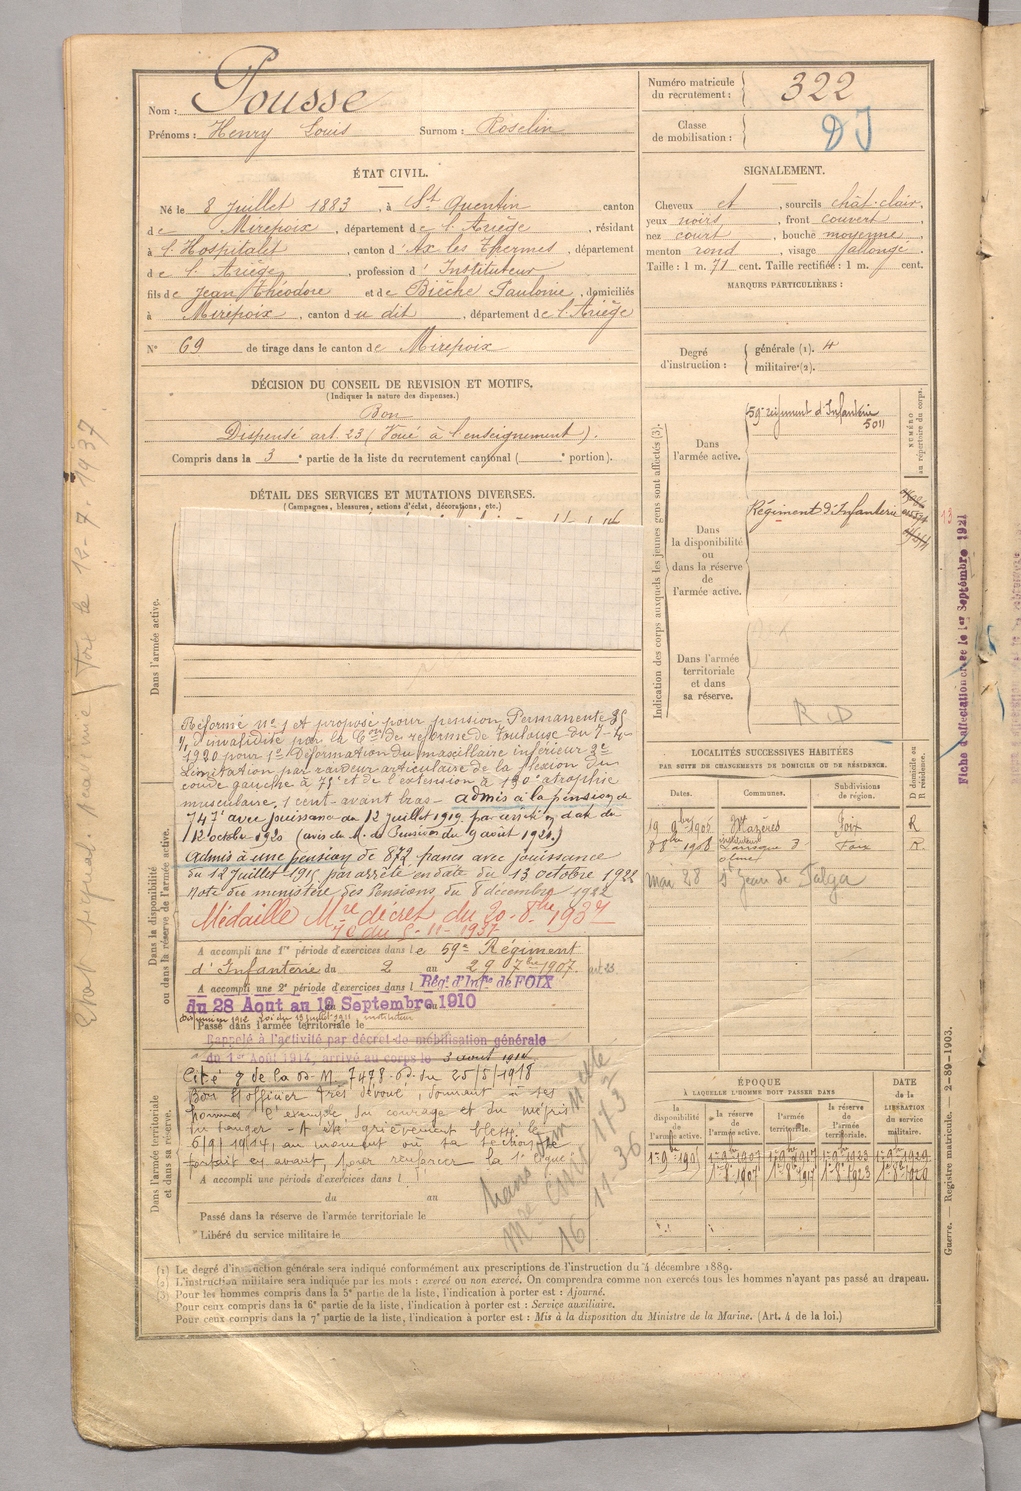 Nom : Pousse
Prénoms : Henry Louis Surnom : Roselin
Numéro matricule du recrutement : 322
Classe de mobilisation :
ÉTAT CIVIL.
Né le 8 Juillet 1883, à St Quentin canton
de Mirepoix, département de l'Ariège, résidant
à l'Hospitalet, canton d'Ax les Thermes, département
de l'Ariège, profession d'Instituteur
fils de Jean Théodore et de Bièche Paulonie, domiciliés
à Mirepoix, canton du dit, département de l'Ariège
N° 69 de tirage dans le canton de Mirepoix
DÉCISION DU CONSEIL DE REVISION ET MOTIFS.
(Indiquer la nature des dispenses.)
Bon
Dispensé art. 23 (Voué à l'enseignement).
Compris dans la 3e partie de la liste du recrutement cantonal ( e portion).
DÉTAIL DES SERVICES ET MUTATIONS DIVERSES.
(Campagnes, blessures, actions d'éclat, décorations, etc.)
Dans l'armée active.
Réformé n° 1 et proposé pour pension Permanente 35
% d'invalidité par la Con de réforme de Toulouse du 7-4-
1920 pour 1° Déformation du maxillaire inférieur 2°
Limitation par raideur articulaire de la flexion du
coude gauche à 75° et de l'extension à 130° atrophie
musculaire, 1 cent. avant bras - admis à la pension de
747f avec jouissance du 12 juillet 1919 par arrêté en date du
12 octobre 1920 (avis du M. des Pensions du 9 avril 1921.)
admis à une pension de 872 francs avec jouissance
du 12 juillet 1919 par arrêté en date du 13 octobre 1922
Note du ministère des Pensions du 8 décembre 1922
Médaille Mre décret du 20-8bre 1937
JO du 5-11-1937
Dans la disponibilité
ou dans la réserve de l'armée active.
A accompli une 1re période d'exercices dans le 59e Régiment
d'Infanterie du 2 au 29 7bre 1907. art. 23.
A accompli une 2e période d'exercices dans l Régt d'Infie de FOIX
du 28 Aout au 19 Septembre 1910
Passé dans l'armée territoriale le
Rappelé à l'activité par décret de mobilisation générale
du 1er Août 1914, arrivé au corps le 3 août 1914
Dans l'armée territoriale
et dans sa réserve.
Cité O. de la D. N° 7478 D. du 25/5/1918
Bon officier très dévoué, donnant à ses
hommes l'exemple du courage et du mépris
du danger - A été grièvement blessé le
6/9/1914, au moment où sa section se
portait en avant, pour renforcer la 1e ligne
A accompli une période d'exercices dans l
du au
Passé dans la réserve de l'armée territoriale le
Libéré du service militaire le
16 11 36
SIGNALEMENT.
Cheveux et, sourcils chât-clair,
yeux noirs, front couvert
nez court, bouche moyenne,
menton rond, visage allongé.
Taille : 1 m. 71 cent. Taille rectifiée : 1 m. cent.
MARQUES PARTICULIÈRES :
Degré d'instruction : générale (1). 4
militaire (2).
Indication des corps auxquels les jeunes gens sont affectés (3).
NUMÉRO au répertoire du corps.
Dans l'armée active.
59e régiment d'Infanterie
5011
Dans la disponibilité ou dans la réserve de l'armée active.
Régiment d'Infanterie
Dans l'armée territoriale et dans sa réserve.
LOCALITÉS SUCCESSIVES HABITÉES
PAR SUITE DE CHANGEMENTS DE DOMICILE OU DE RÉSIDENCE.
D domicile ou R résidence.
Dates. Communes. Subdivisions de région.
19 9bre 1905 Mazères Foix R
8bre 1908 Foix R.
mai 28 St Jean de Falga
ÉPOQUE
À LAQUELLE L'HOMME DOIT PASSER DANS
DATE de la LIBÉRATION du service militaire.
la disponibilité de l'armée active. la réserve de l'armée active. l'armée territoriale. la réserve de l'armée territoriale.
1er 9bre 1907 1er 9bre 1917 1er 9bre 1923 1er 9bre 1929
1er 8bre 1907 1er 8bre 1917 1er 8bre 1923 1er 8bre 1929
(1) Le degré d'instruction générale sera indiqué conformément aux prescriptions de l'instruction du 4 décembre 1889.
(2) L'instruction militaire sera indiquée par les mots : exercé ou non exercé. On comprendra comme non exercés tous les hommes n'ayant pas passé au drapeau.
(3) Pour les hommes compris dans la 5e partie de la liste, l'indication à porter est : Ajourné.
Pour ceux compris dans la 6e partie de la liste, l'indication à porter est : Service auxiliaire.
Pour ceux compris dans la 7e partie de la liste, l'indication à porter est : Mis à la disposition du Ministre de la Marine. (Art. 4 de la loi.)
Guerre. — Registre matricule. — 2-89-1903.
Fiche d'affectation créée le 1er Septembre 1921